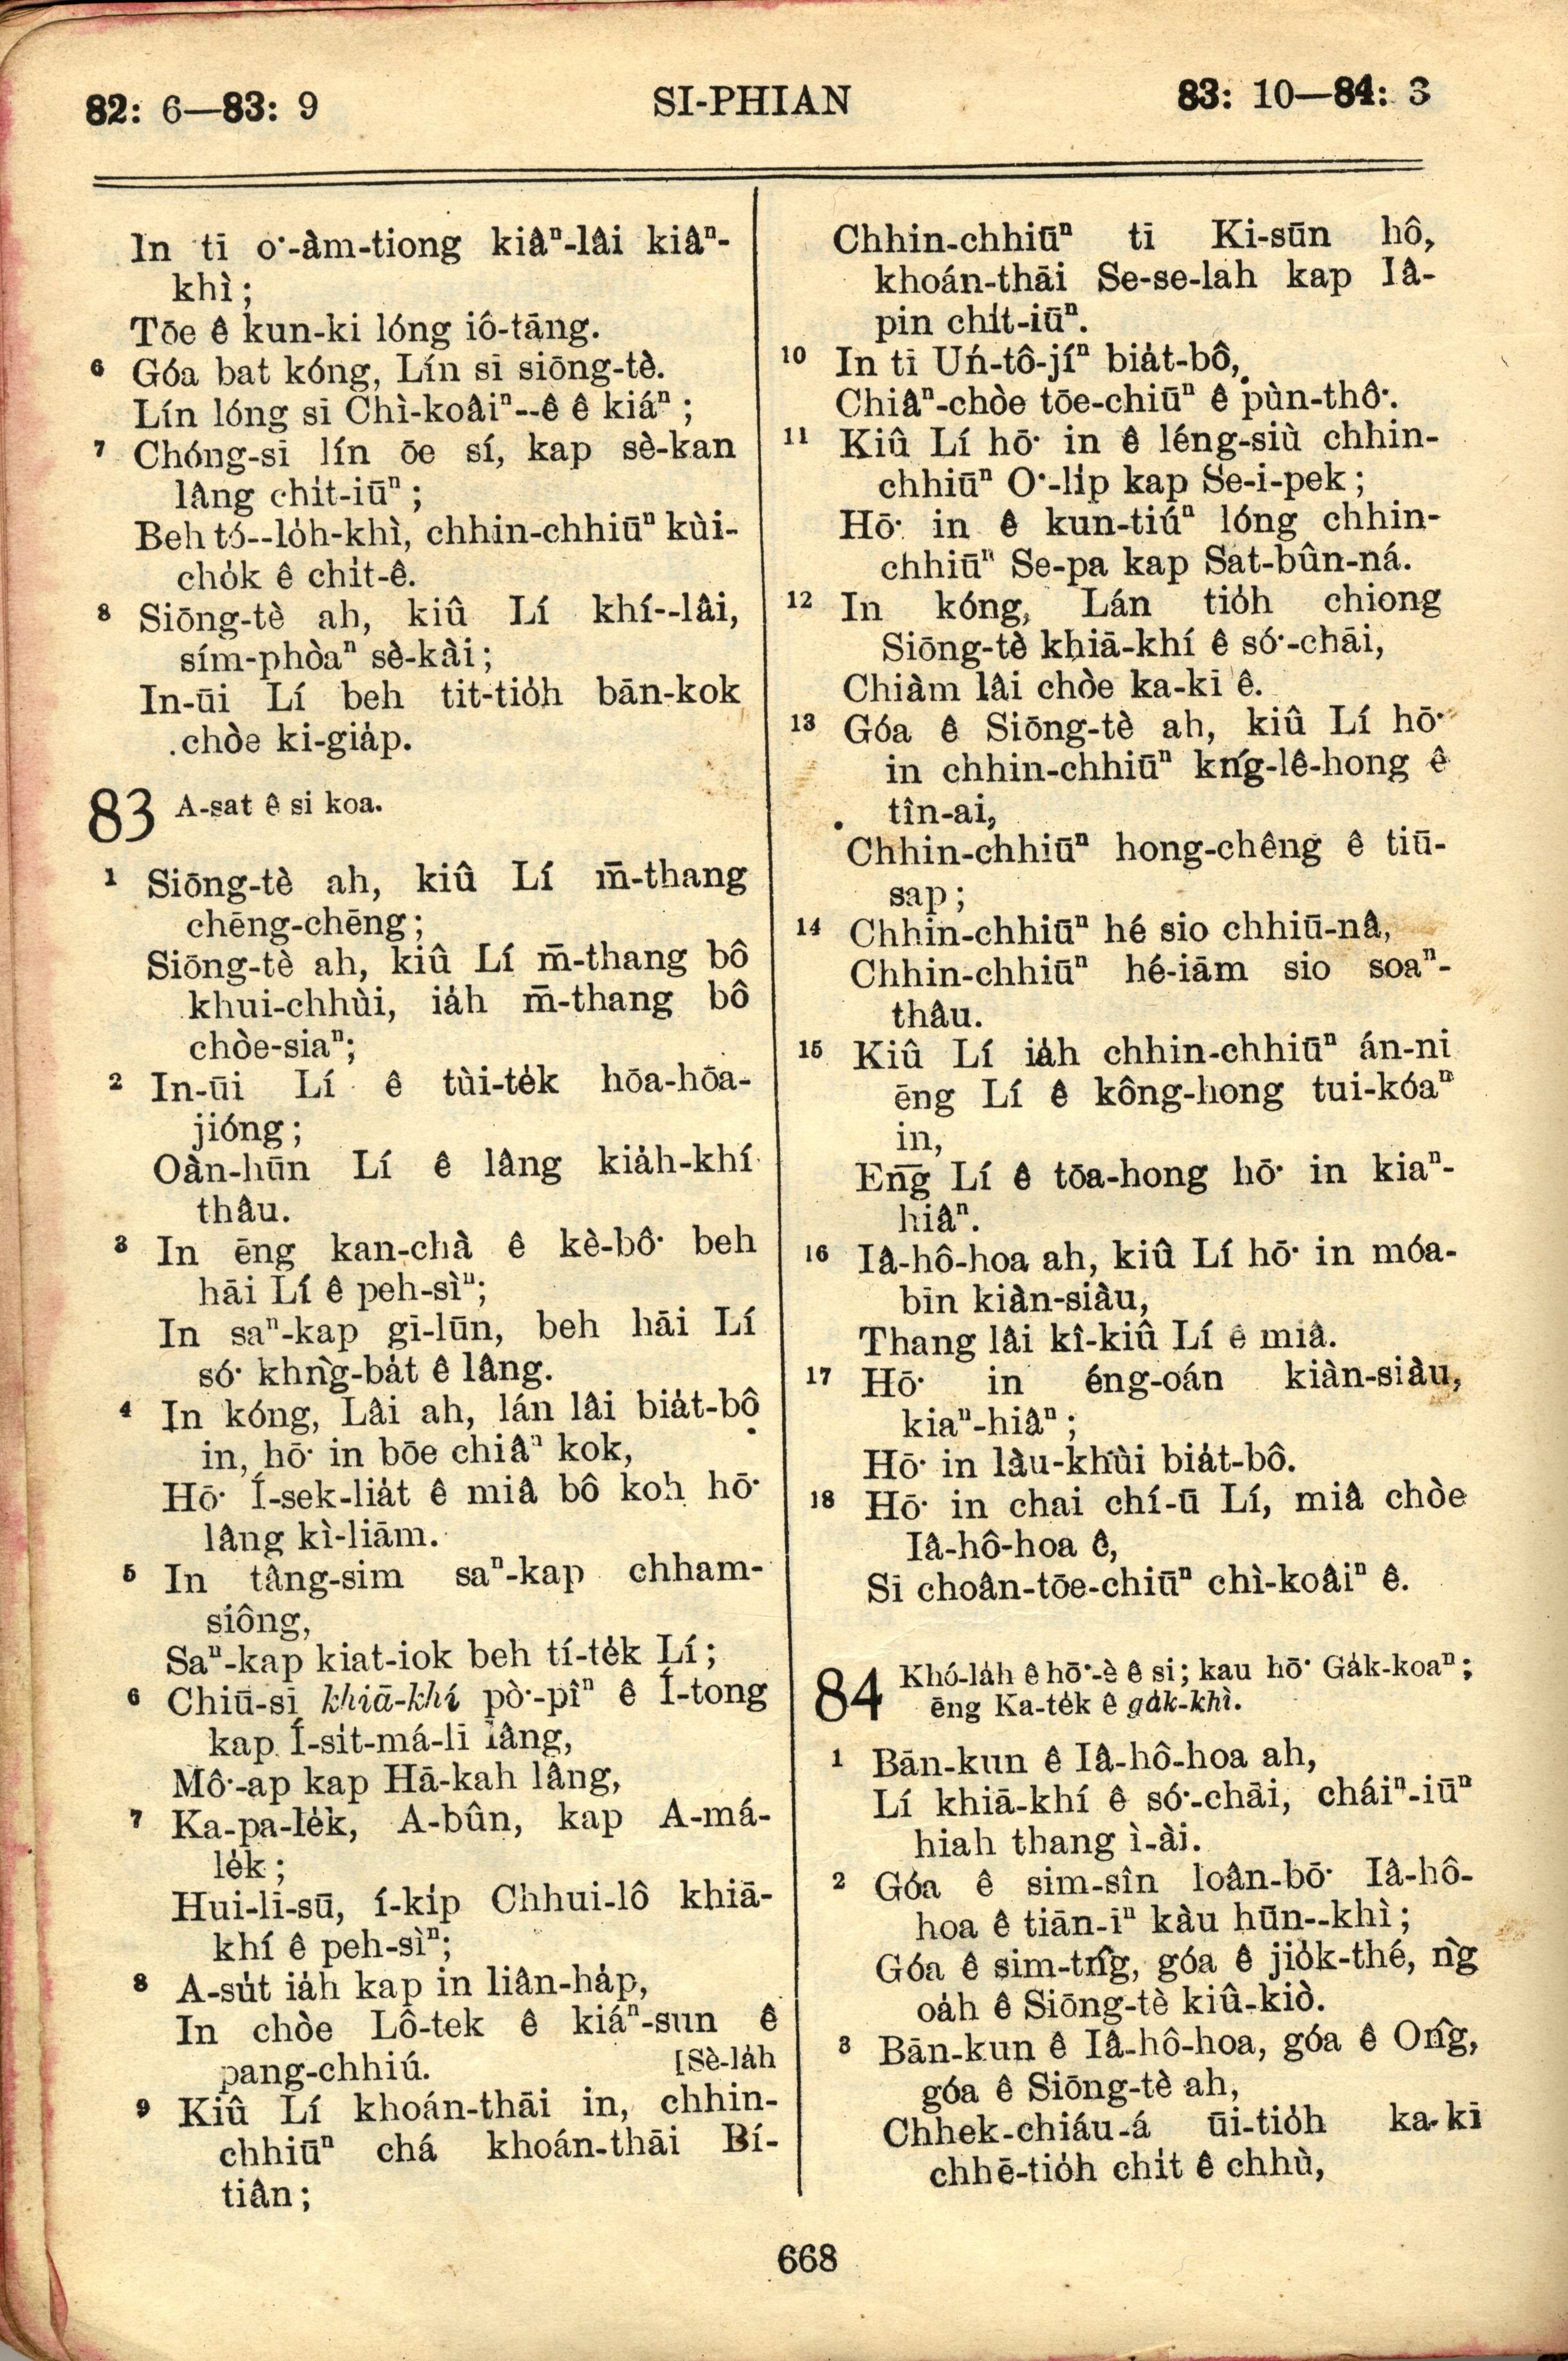 82: 6—83: 9
SI-PHIAN
83: 10—84: 3
In tī o͘-àm-tiong kiâⁿ-lâi kiâⁿ-
khì;
Tōe ê kun-ki lóng iô-tāng.
6 Góa bat kóng, Lín sī siōng-tè.
Lín lóng sī Chì-koâiⁿ--ê ê kiáⁿ;
7 Chóng-sī lín ōe sí, kap sè-kan
lâng chi̍t-iūⁿ;
Beh tó--lo̍h-khì, chhin-chhiūⁿ kùi-
cho̍k ê chi̍t-ê.
8 Siōng-tè ah, kiû Lí khí--lâi,
sím-phòaⁿ sè-kài;
In-ūi Lí beh tit-tio̍h bān-kok
chòe ki-gia̍p.
83 A-sat ê si koa.
1 Siōng-tè ah, kiû Lí m̄-thang
chēng-chēng;
Siōng-tè ah, kiû Lí m̄-thang bô
khui-chhùi, ia̍h m̄-thang bô
chòe-siaⁿ;
2 In-ūi Lí ê tùi-te̍k hōa-hōa-
jióng;
Oàn-hūn Lí ê lâng kia̍h-khí
thâu.
3 In ēng kan-chà ê kè-bô͘ beh
hāi Lí ê peh-sìⁿ;
In saⁿ-kap gī-lūn, beh hāi Lí
só͘ khǹg-ba̍t ê lâng.
4 In kóng, Lâi ah, lán lâi bia̍t-bô
in, hō͘ in bōe chiâⁿ kok,
Hō͘ Í-sek-lia̍t ê miâ bô koh hō͘
lâng kì-liām.
5 In tâng-sim saⁿ-kap chham-
siông,
Saⁿ-kap kiat-iok beh tí-te̍k Lí;
6 Chiū-sī khiā-khí pò͘-pîⁿ ê Í-tong
kap Í-si̍t-má-lī lâng,
Mô͘-ap kap Hā-kah lâng,
7 Ka-pa-le̍k, A-bûn, kap A-má-
le̍k;
Hui-lī-sū, í-ki̍p Chhui-lô khiā-
khí ê peh-sìⁿ;
8 A-su̍t ia̍h kap in liân-ha̍p,
In chòe Lô-tek ê kiáⁿ-sun ê
pang-chhiú. [Sè-la̍h
9 Kiû Lí khoán-thāi in, chhin-
chhiūⁿ chá khoán-thāi Bí-
tiân;
Chhin-chhiūⁿ tī Ki-sūn hô,
khoán-thāi Se-se-lah kap Iâ-
pin chi̍t-iūⁿ.
10 In tī Uń-tô-jíⁿ bia̍t-bô,
Chiâⁿ-chòe tōe-chiūⁿ ê pùn-thô͘.
11 Kiû Lí hō͘ in ê léng-siù chhin-
chhiūⁿ O͘-li̍p kap Se-i-pek;
Hō͘ in ê kun-tiúⁿ lóng chhin-
chhiūⁿ Se-pa kap Sat-bûn-ná.
12 In kóng, Lán tio̍h chiong
Siōng-tè khiā-khí ê só͘-chāi,
Chiàm lâi chòe ka-kī ê.
13 Góa ê Siōng-tè ah, kiû Lí hō͘
in chhin-chhiūⁿ kńg-lê-hong ê
tîn-ai,
Chhin-chhiūⁿ hong-chêng ê tiū-
sap;
14 Chhin-chhiūⁿ hé sio chhiū-nâ,
Chhin-chhiūⁿ hé-iām sio soaⁿ-
thâu.
15 Kiû Lí ia̍h chhin-chhiūⁿ án-ni
ēng Lí ê kông-hong tui-kóaⁿ
in,
En̄g Lí ê tōa-hong hō͘ in kiaⁿ-
hiâⁿ.
16 Iâ-hô-hoa ah, kiû Lí hō͘ in móa-
bīn kiàn-siàu,
Thang lâi kî-kiû Lí ê miâ.
17 Hō͘ in éng-oán kiàn-siàu,
kiaⁿ-hiâⁿ;
Hō͘ in làu-khùi bia̍t-bô.
18 Hō͘ in chai chí-ū Lí, miâ chòe
Iâ-hô-hoa ê,
Sī choân-tōe-chiūⁿ chì-koâiⁿ ê.
84 Khó-la̍h ê hō͘-è ê si; kau hō͘ Ga̍k-koaⁿ;
ēng Ka-te̍k ê ga̍k-khì.
1 Bān-kun ê Iâ-hô-hoa ah,
Lí khiā-khí ê só͘-chāi, cháiⁿ-iūⁿ
hiah thang ì-ài.
2 Góa ê sim-sîn loân-bō͘ Iâ-hô-
hoa ê tiān-īⁿ kàu hūn--khì;
Góa ê sim-tn̂g, góa ê jio̍k-thé, ǹg
oa̍h ê Siōng-tè kiû-kiò.
3 Bān-kun ê Iâ-hô-hoa, góa ê On̂g,
góa ê Siōng-tè ah,
Chhek-chiáu-á ūi-tio̍h ka-kī
chhē-tio̍h chi̍t ê chhù,
668